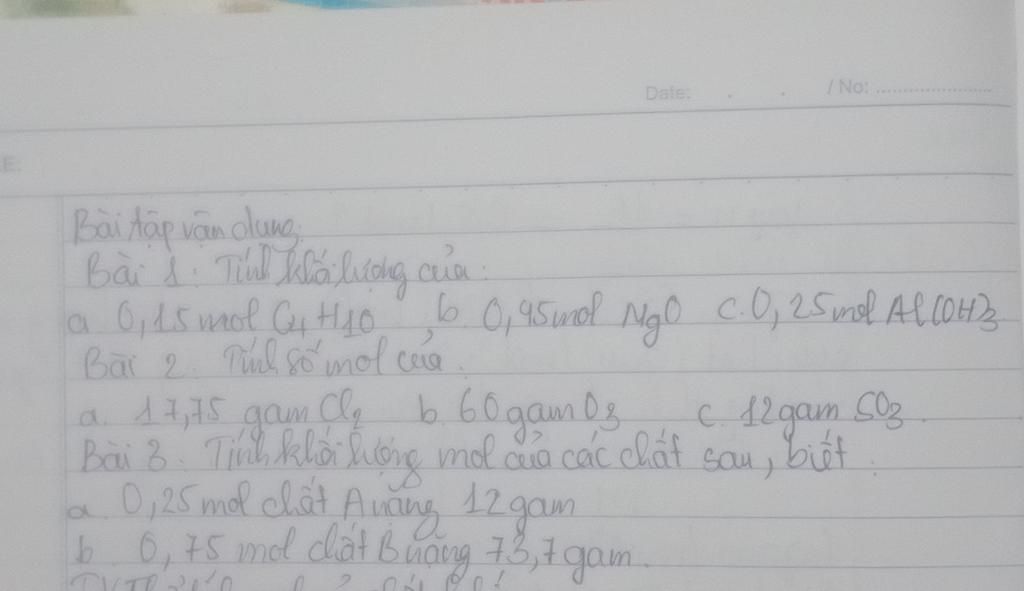 Date: . . / No: ......................
E.
Bài tập vận dụng:
Bài 1: Tính khối lượng của:
a 0,15 mol C4H10 b. 0,45 mol MgO c. 0,25 mol Al(OH)3
Bài 2. Tính số mol của.
a. 17,75 gam Cl2 b. 60 gam O3 c. 12 gam SO3.
Bài 3. Tính khối lượng mol của các chất sau, biết:
a. 0,25 mol chất A nặng 12 gam
b. 0,75 mol chất B nặng 73,7 gam.